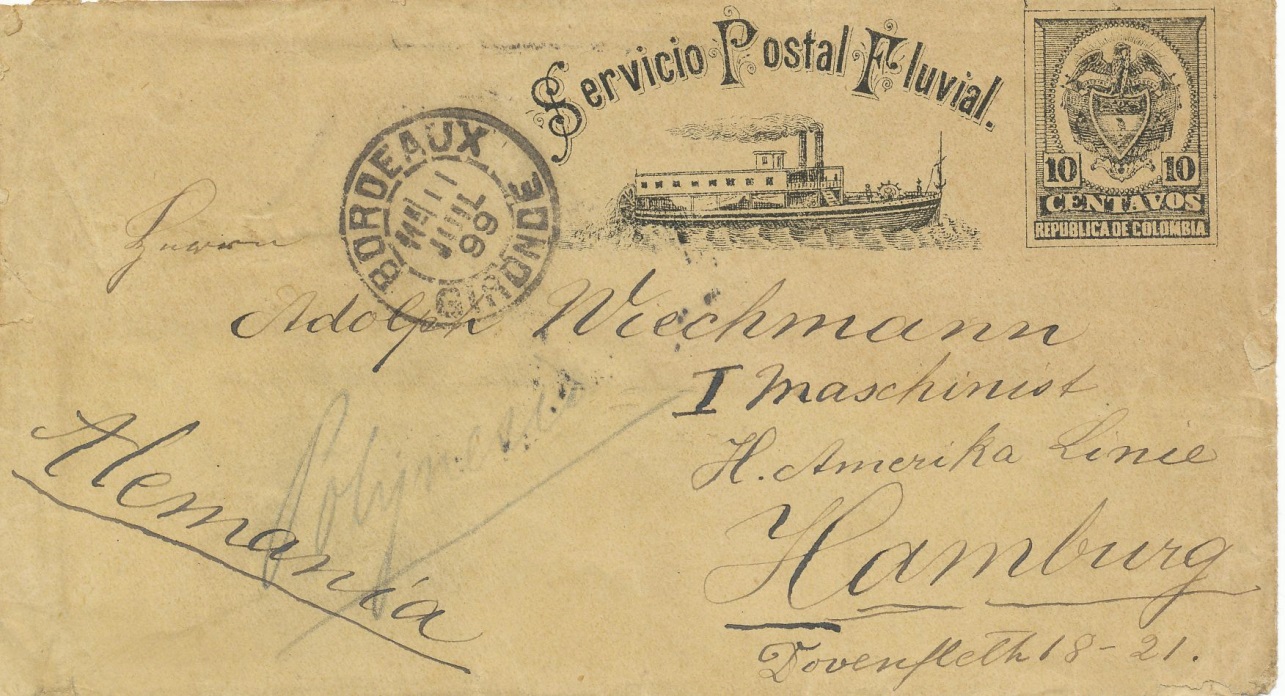 Servicio Postal Fluvial.
10 10
CENTAVOS
REPUBLICA DE COLOMBIA
BORDEAUX
11
JUIL
99
GIRONDE
Herrn
Adolph Wiechmann
I Maschinist
H. Amerika Linie
Hamburg
Dovenfleth 18-21.
Alemania
Polynesia